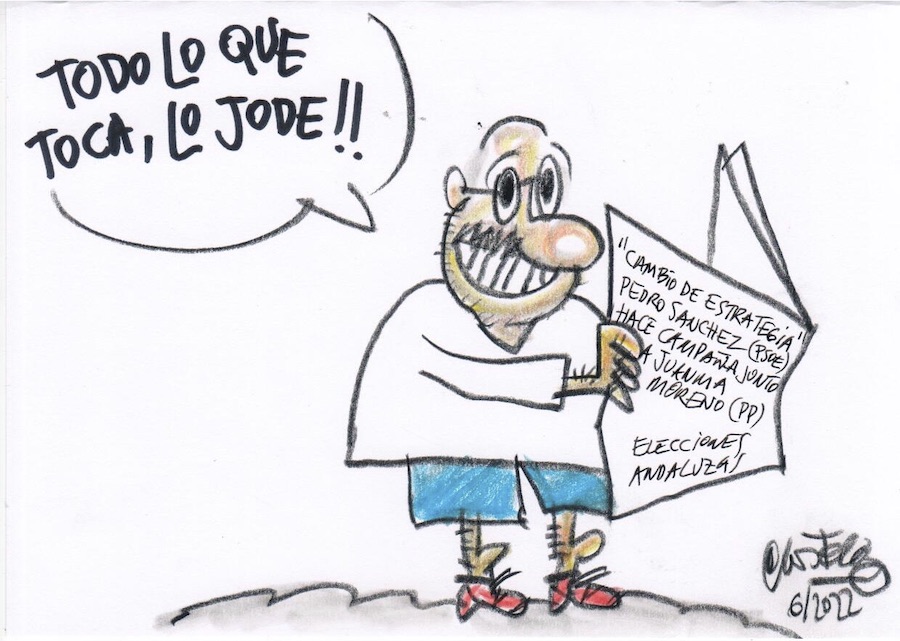 TODO LO QUE
TOCA, LO JODE!!
"CAMBIO DE ESTRATEGIA"
PEDRO SANCHEZ (PSOE)
HACE CAMPAÑA JUNTO
A JUANMA
MORENO (PP)
ELECCIONES
ANDALUZAS
6/2022